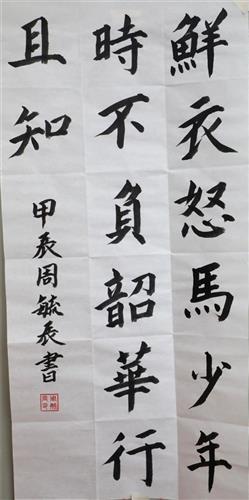 鮮衣怒馬少年
時不負韶華行
且知
甲辰周毓辰書